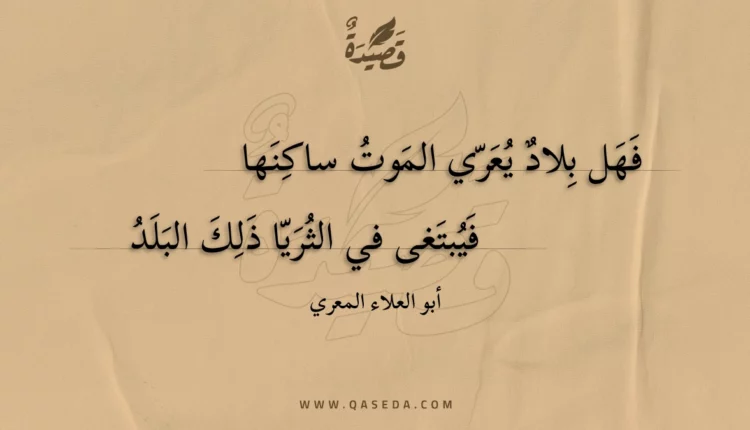 قَصِيدَةٌ
فَهَل بِلادٌ يُعَرّي المَوتُ ساكِنَها
فَيُبتَغى في الثُرَيّا ذَلِكَ البَلَدُ
أبو العلاء المعري
WWW.QASEDA.COM